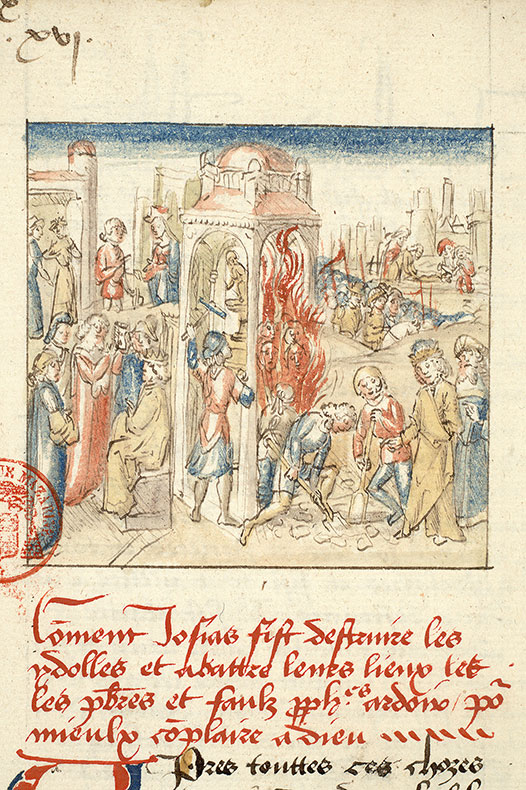 xvj.
Cōment Josias fist destruire les
ydolles et abattre leurs lieux les
les pb̄res et faulz ꝓph̄es ardoir / po᷑
mieulx cōplaire a dieu
Apres touttes ces chozes